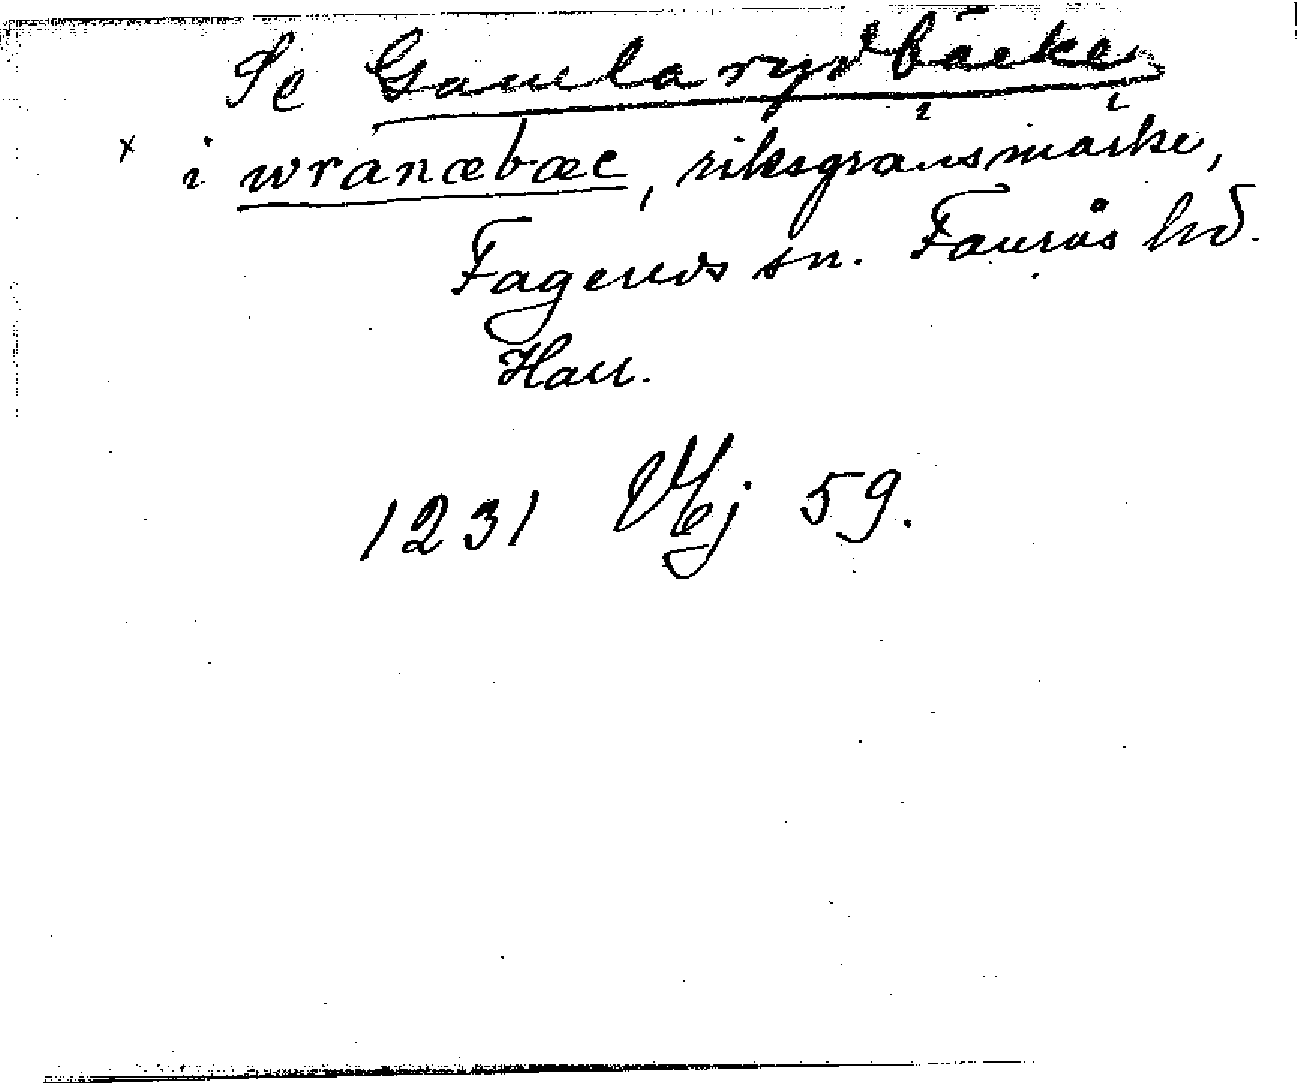 Se Gamla rydbäcken
x i wranæbæc, riksgränsmärke,
Fagereds sn. Faurås hd.
Hall.
1231 VMj 59.